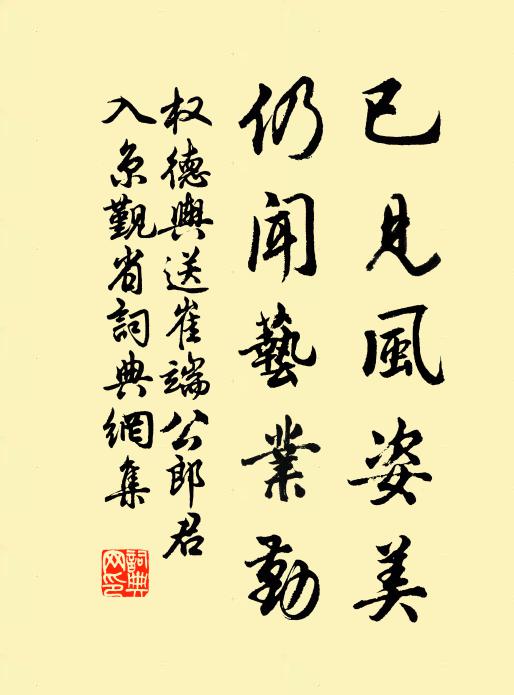 已見風姿美
仍聞藝業勤
权德輿送崔端公郎君
入京覲省詞典網集
詞典
网印